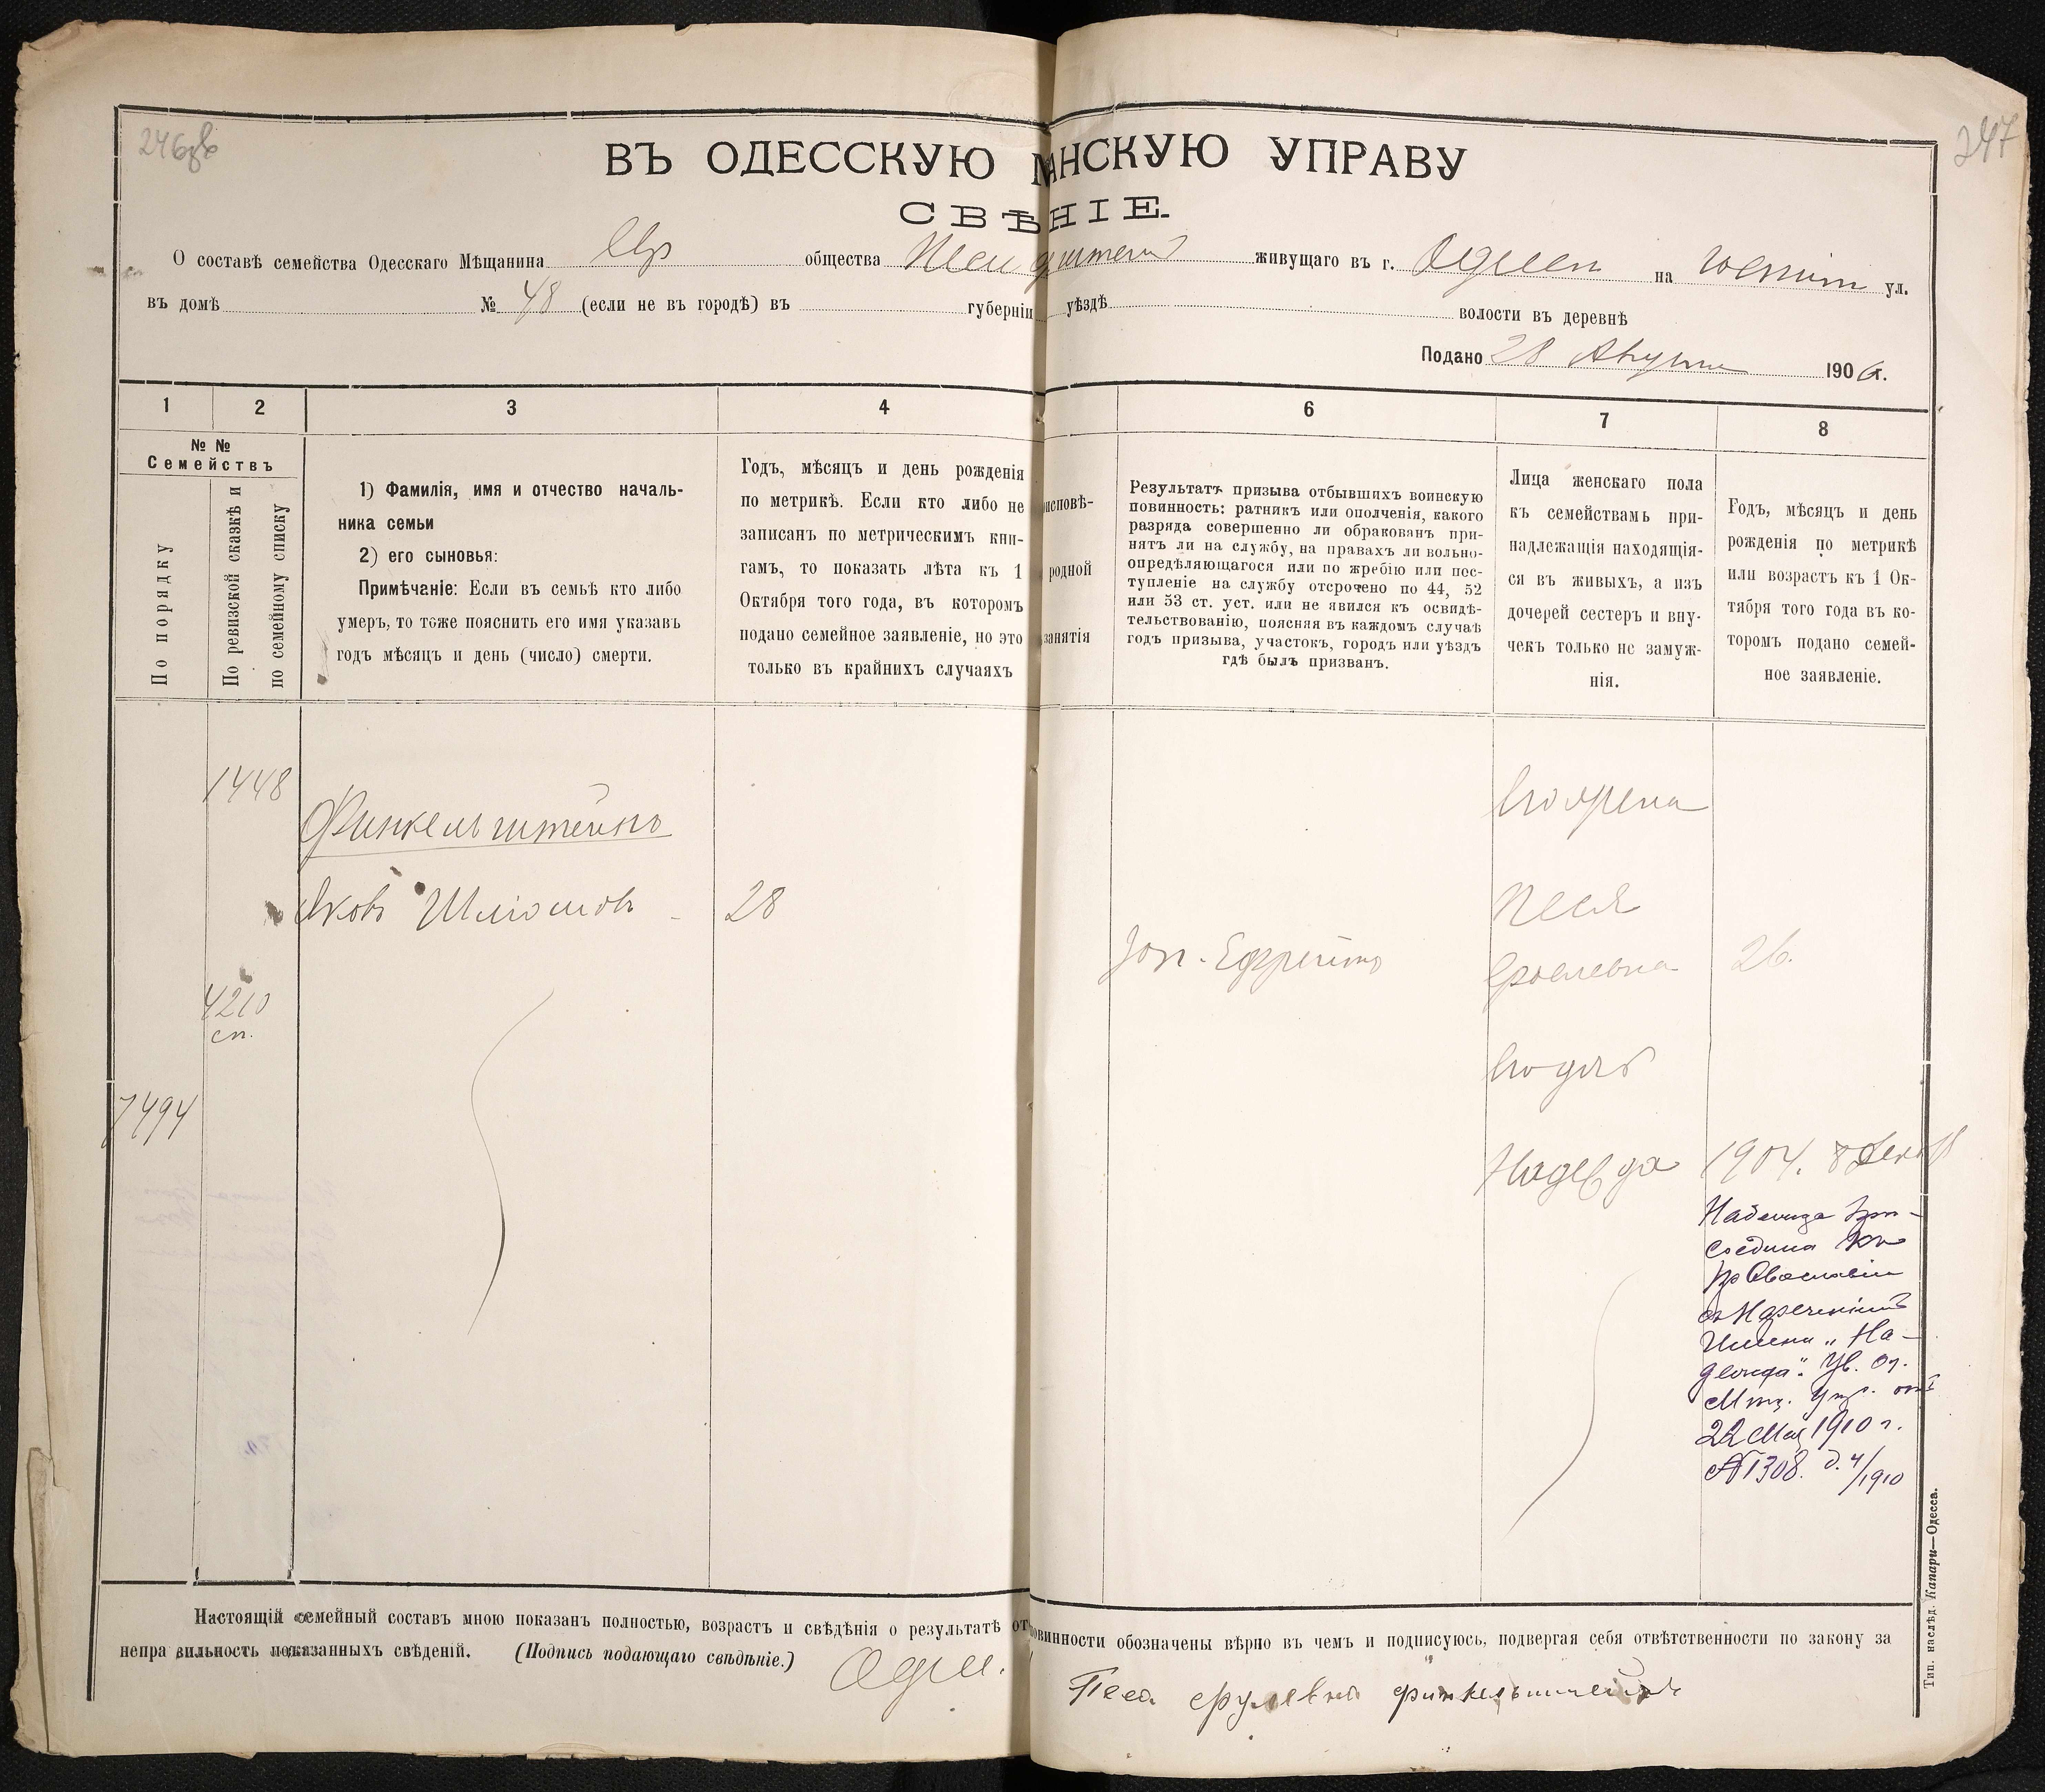 246об
247
ВЪ ОДЕССКУЮ М АНСКУЮ УПРАВУ
СВѢ НІЕ.
О составѣ семейства Одесскаго Мѣщанина Евр общества живущаго въ г. Одессе на ул.
въ домѣ № 48 (если не въ городѣ) въ губерніи уѣздѣ волости въ деревнѣ
Подано 28 Августа 1906 г.
1 2 3 4 6 7 8
№ №
Семействъ
По порядку
По ревизской сказкѣ и
по семейному списку
1) Фамилія, имя и отчество началь-
ника семьи
2) его сыновья:
Примѣчаніе: Если въ семьѣ кто либо
умеръ, то тоже пояснить его имя указавъ
годъ мѣсяцъ и день (число) смерти.
Годъ, мѣсяцъ и день рожденія
по метрикѣ. Если кто либо не
записанъ по метрическимъ кни-
гамъ, то показать лѣта къ 1
Октября того года, въ которомъ
подано семейное заявленіе, но это
только въ крайнихъ случаяхъ
исповѣ-
родной
занятія
Результатъ призыва отбывшихъ воинскую
повинность: ратникъ или ополченія, какого
разряда совершенно ли обракованъ при-
нятъ ли на службу, на правахъ ли вольно-
опредѣляющагося или по жребію или пос-
тупленіе на службу отсрочено по 44, 52
или 53 ст. уст. или не явился къ освидѣ-
тельствованію, поясняя въ каждомъ случаѣ
годъ призыва, участокъ, городъ или уѣздъ
гдѣ былъ призванъ.
Лица женскаго пола
къ семействамъ при-
надлежащія находящія-
ся въ живыхъ, а изъ
дочерей сестеръ и вну-
чекъ только не замуж-
нія.
Годъ, мѣсяцъ и день
рожденія по метрикѣ
или возрастъ къ 1 Ок-
тября того года въ ко-
торомъ подано семей-
ное заявленіе.
1448
Финкельштейнъ
Яковъ Шліомовъ 28
Зап. Ефрейтор
Его жена
Песя
Сролевна 26.
4210
сп.
Его дѣт
7494
Надежда 1904. 8 Декабр
Надежда при-
соедина къ
Православію
съ Нареченіемъ
Имени „На-
дежда". Ув. Од.
Мѣщ. Упр. отъ
22 Мая 1910 г.
№ 1308. д. 4/1910
Настоящій семейный составъ мною показанъ полностью, возрастъ и сведѣнія о результатѣ от овинности обозначены вѣрно въ чемъ и подписуюсь, подвергая себя отвѣтственности по закону за
неправильность показанныхъ свѣденій. (Подпись подающаго свѣдѣніе.) Одес.
Песа срулевна финкельштейнъ
Тип. наслѣд. Капари—Одесса.